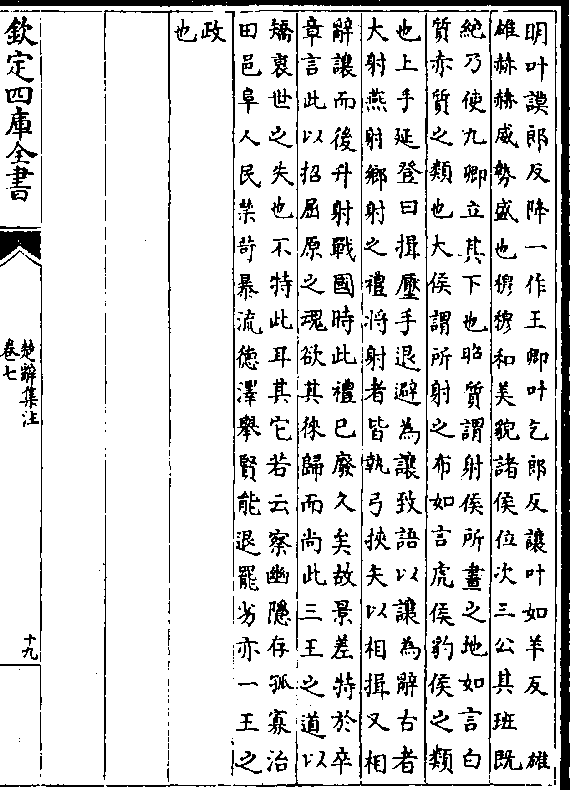 明叶謨郎反降一作王卿叶乞郎反讓叶如羊反 雄
雄赫赫威勢盛也穆穆和美貌諸侯位次三公其班既
絶乃使九卿立其下也昭質謂射侯所畫之地如言白
質赤質之類也大侯謂所射之布如言虎侯豹侯之類
也上手延登曰揖壓手退避為讓致語以讓為辭古者
大射燕射鄉射之禮將射者皆執弓挾矢以相揖又相
辭讓而後升射戰國時此禮已廢久矣故景差特於卒
章言此以招屈原之魂欲其徠歸而尚此三王之道以
矯衰世之失也不特此耳其它若云察幽隱存孤寡治
田邑阜人民禁苛暴流徳澤舉賢能退罷劣亦一王之
政
也
欽定四庫全書
楚辭集注
卷七
十九